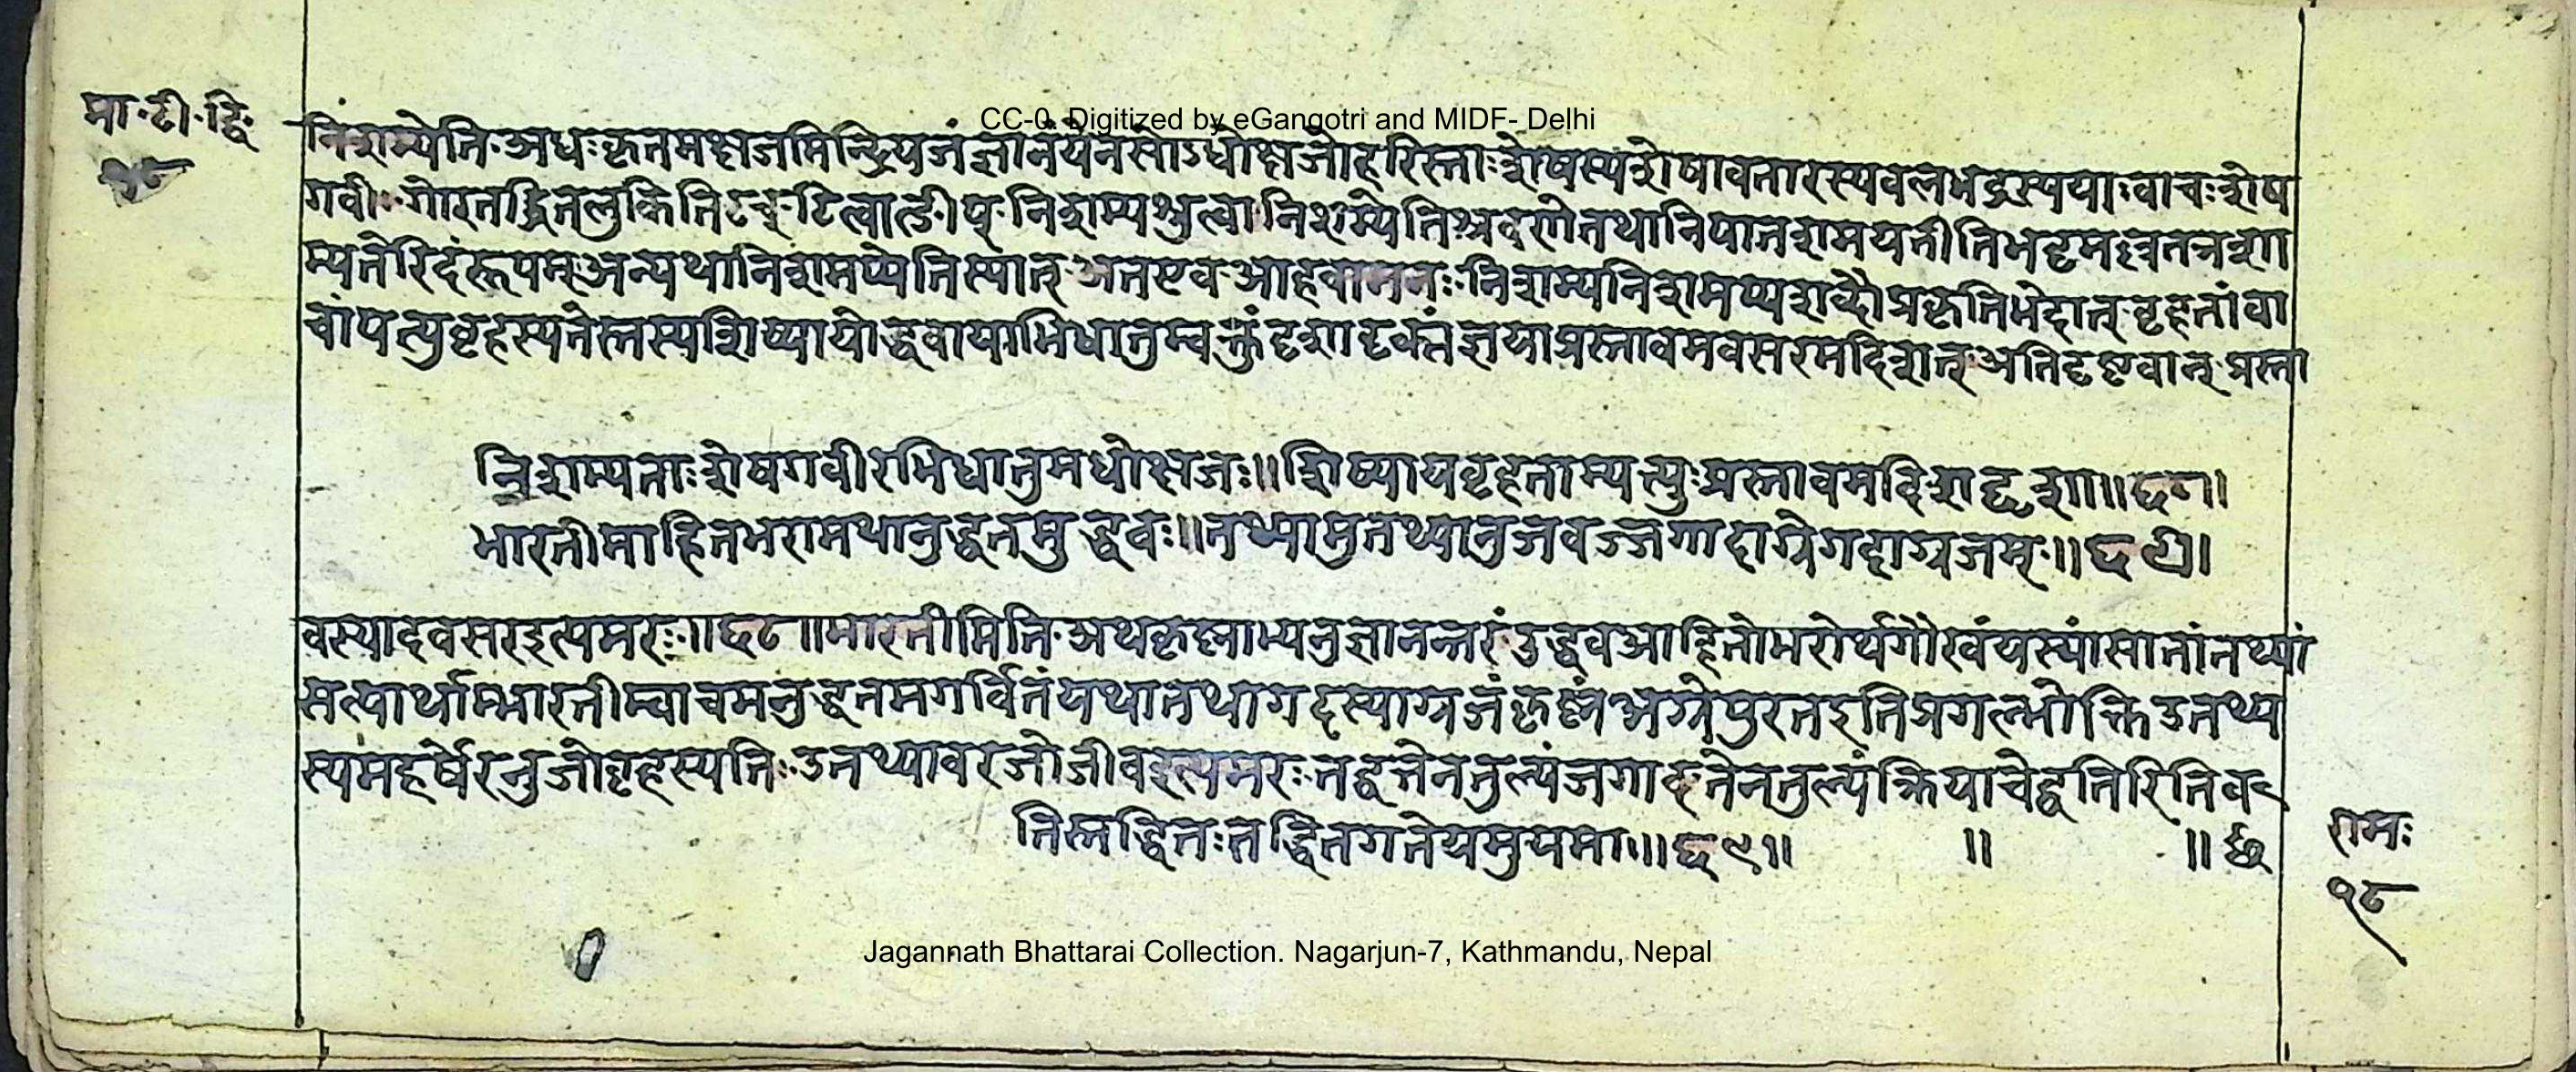 मा॰टी॰द्वि॰
१८
CC-0. Digitized by eGangotri and MIDF- Delhi
निशम्येति॰अधःकृतमक्षजमिन्द्रियजंज्ञानंयेनसोऽधोक्षजोहरिस्ताःशेषस्यशेषावतारस्यवलभद्रस्ययाःवाचःशेष
गवीः॰गोरतद्धितलुकितिटच्॰टित्वात्ङीप्॰निशम्यश्रुत्वा॰निशम्येतिश्रवणेतथानिपातशमयतीतिभट्टमल्लतत्रशा
म्यतेरिदंरूपम्॰अन्यथानिशमय्येतिस्यात्॰अतएव॰आहवामनः॰निशम्यनिशमय्यशव्दौप्रकृतिभेदात्॰वृहतांवा
चांपत्युवृहस्पतेस्तस्यशिष्यायोद्धवायाभिधातुम्वक्तुंदृशादृक्संज्ञयाप्रस्तावमवसरमदिशत्॰अतिदृष्टवान्॰प्रस्ता
निशम्यताःशेषगवीरभिधातुमधोक्षजः॥शिष्यायवृहताम्पत्युःप्रस्तावमदिशद्दृशा॥६८॥
भारतीमाहितभरामथानुद्धतमुद्धवः॥तथ्यामुतथ्यानुजवज्जगादाग्रेगदाग्रजम्ः॥६९॥
वस्यादवसरइत्यमरः॥६८॥भारतीमिति॰अथकृष्णाभ्यनुज्ञानन्तरंउद्धवआहितोभरोर्थगौरवंयस्यांसातांतथ्यां
सत्यार्थाम्भारतीम्वाचमनुद्धतमगर्वितंयथातथागदस्याग्रजंकृष्णंअग्रेपुरतइतिप्रगल्भोक्तिउतथ्य
स्यमहर्षेरनुजोवृहस्पतिः॰उतथ्यावरजोजीवइत्यमरः॰तद्वत्तेनतुल्यंजगाद॰तेनतुल्यंक्रियाचेद्वतिरितिव
तिस्तद्धितः॰तद्धितगतेयमुपमा॥६९॥ ॥ ॥ छ
रामः
१८
Jagannath Bhattarai Collection. Nagarjun-7, Kathmandu, Nepal